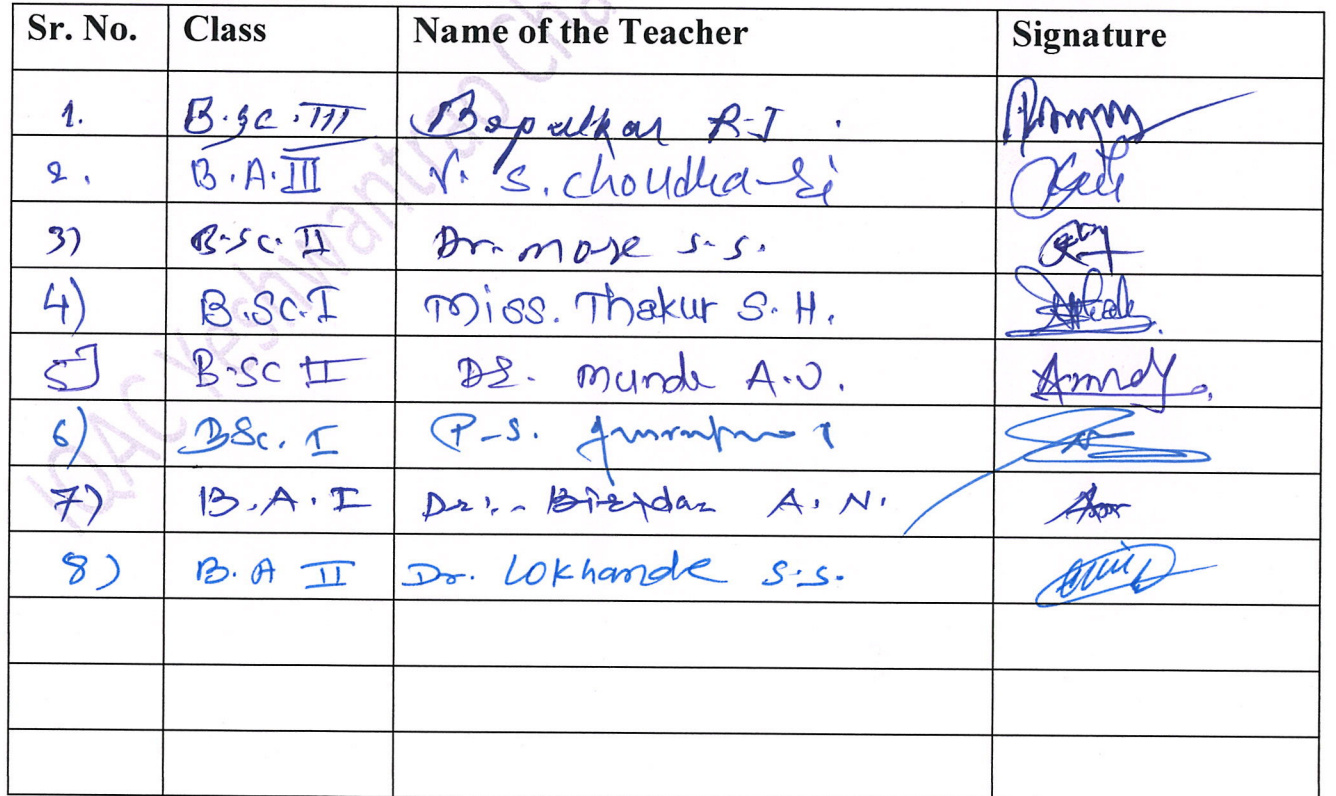 Sr. No. Class Name of the Teacher Signature
1. B.Sc.III R.J.
2. B.A.III V. S. Choudhari
3) B.Sc. II Dr. More S.S.
4) B.SC.I Miss. Thakur S. H.
5] B.SC II Dr. Munde A.V.
6) BSc. I P.S.
7) B.A.I Dr. Birajdar A. N.
8) B.A II Dr. Lokhande S.S.
IQAC Yeshwantrao Cha